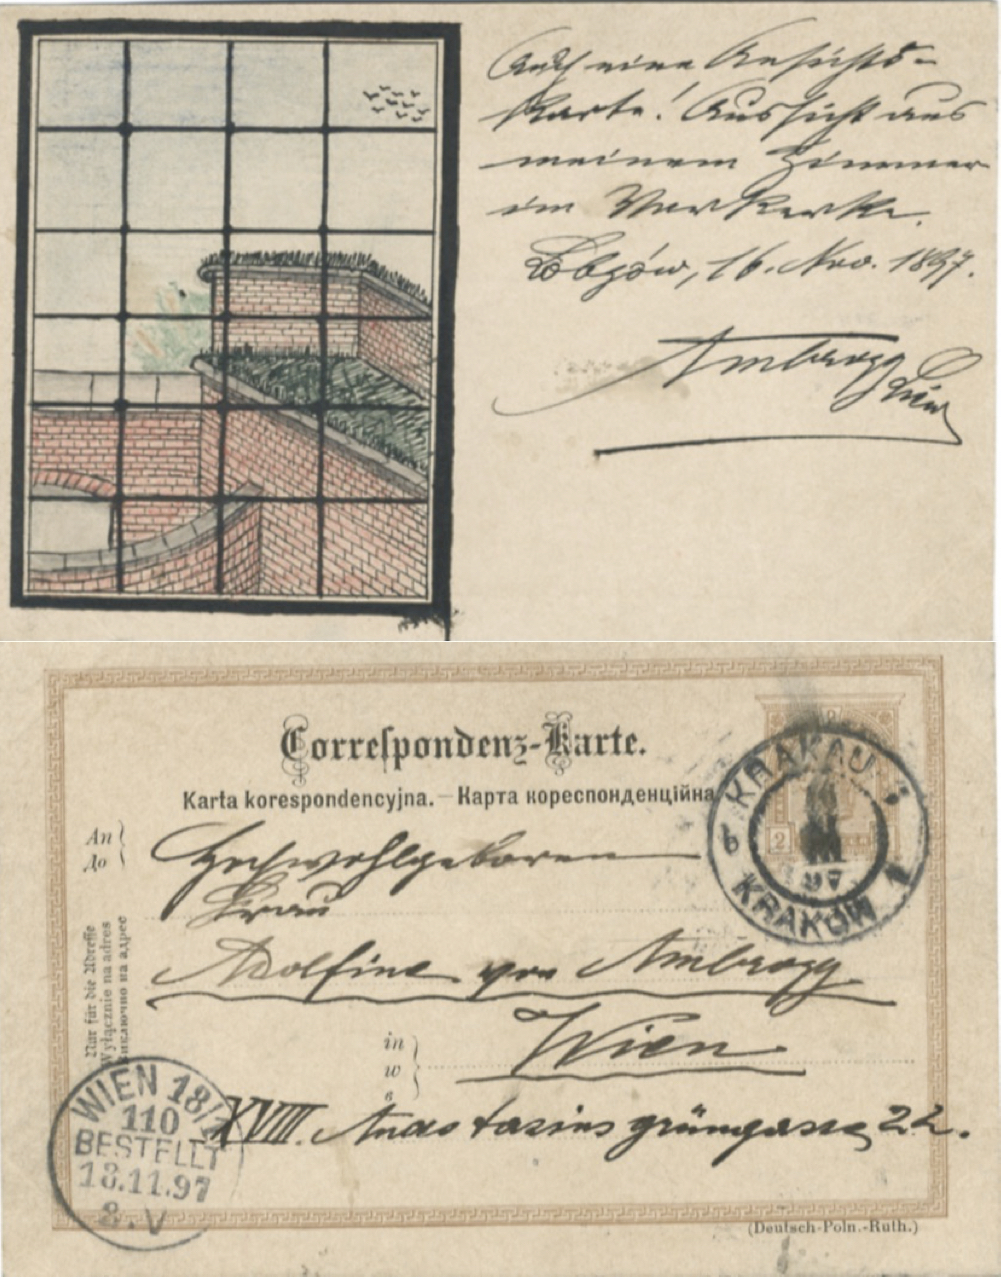 Auch eine Ansichts-
Karte! Aussicht aus
meinem Zimmer
im Vorkerke.
Łobzów, 16. Nov. 1897.
Ambrogy
Correspondenz-Karte.
Karta korespondencyjna. – Карта кореспонденційна
An
До
Hochwohlgeboren
Frau
Adolfine von Ambrogy
in
w
в
Wien
XVIII. Anastasius grüngasse 22.
Nur für die Adresse
Wyłącznie na adres
KRAKAU
6
2
97
KRAKÓW 1
WIEN 18/
110
BESTELLT
18.11.97
8.V
(Deutsch-Poln.-Ruth.)